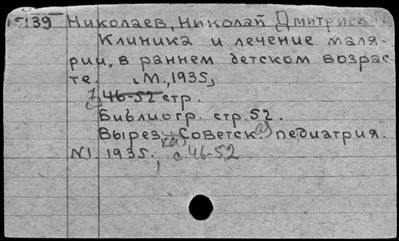 15139 Николаев, Николай Дмитриев.
Клиника и лечение маля-
рии в раннем детском возрас-
те. М., 1935,
7 46-52 стр.
Библиогр. стр. 52.
Вырез. Советск. педиатрия.
N1. 1935. с 46-52